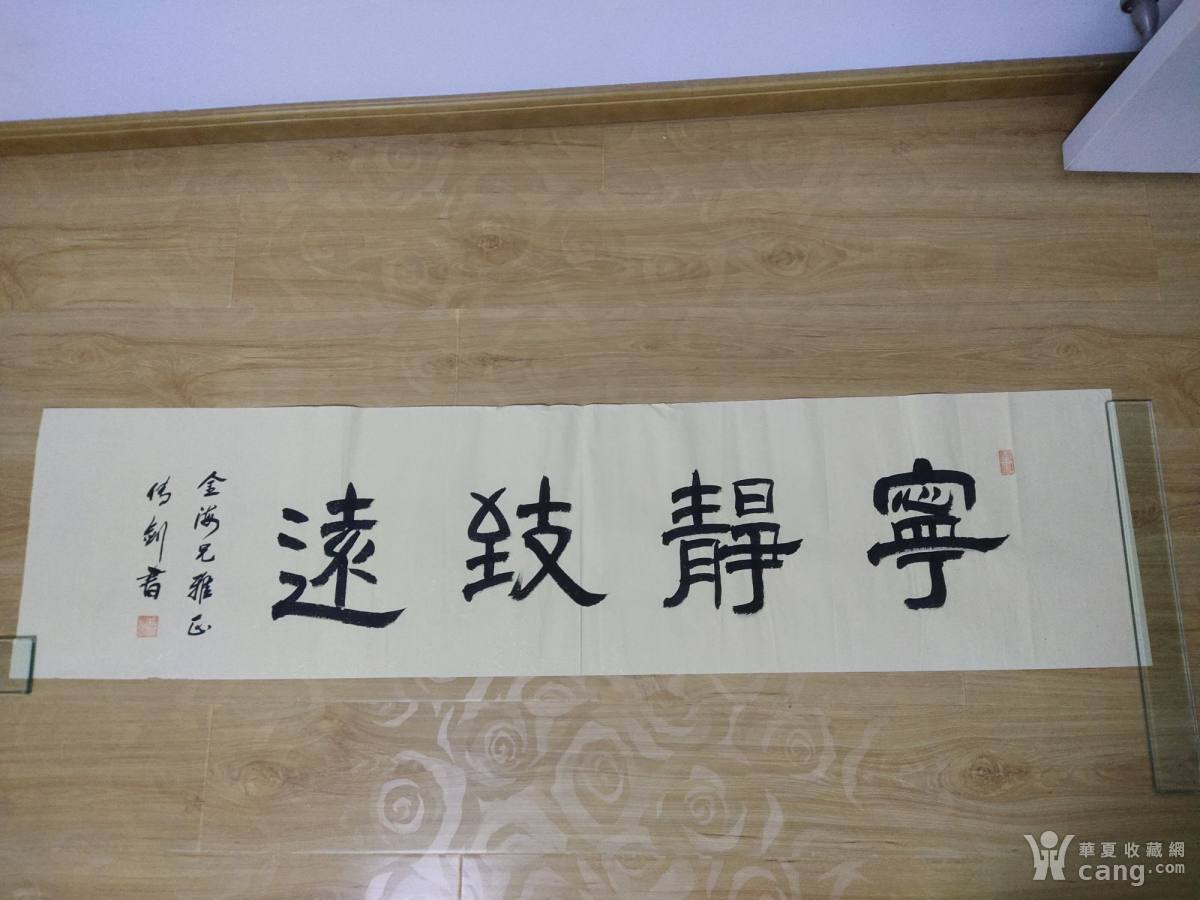 寧靜致遠
金海兄雅正
傳劍書
華夏收藏網
cang.com